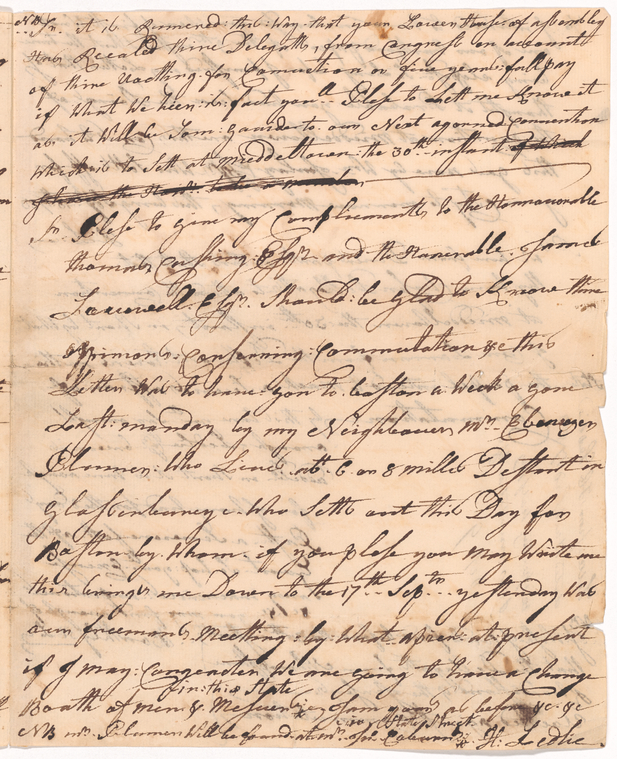 NB Sr. it is Rumered this Way that your Lower House of assembly
Has Recaled thine Delegats, from Congress on account
of thine Voatting for Comution or five years full pay
if What We hear is fact you'll Plese to Lett me Know it
as it Will be Som to our Next agorned Convention
Which is to Sett at Middeltown the 30th instant of Which

Sr. Plese to give my Complements to the Honnourable
thomas Cushing Esqr. and the Honerable James
Esqr. Should be Glad to Know thine
oppinions Conserning Commutation &c this
Letter Was to have gon to boston a Week a gone
Last monday by my Neighbour Mr. Ebenezer
Plummer Who Lives abt. 6 or 8 milles Destant in
Glassenburey &c Who Setts out this Day for
Boston by Whom if you plese you May Write me
this brings me Down to the 17th Sepm. yesterday Was
our freemans Meetting by What apears at present
if I may Congecter We are going to have a Change
in this State
Boath of men & Mesuers I am yours as before &c &c
in State Street
NB mr. Plumer Will be found at mr. Jos. H: Ledlie